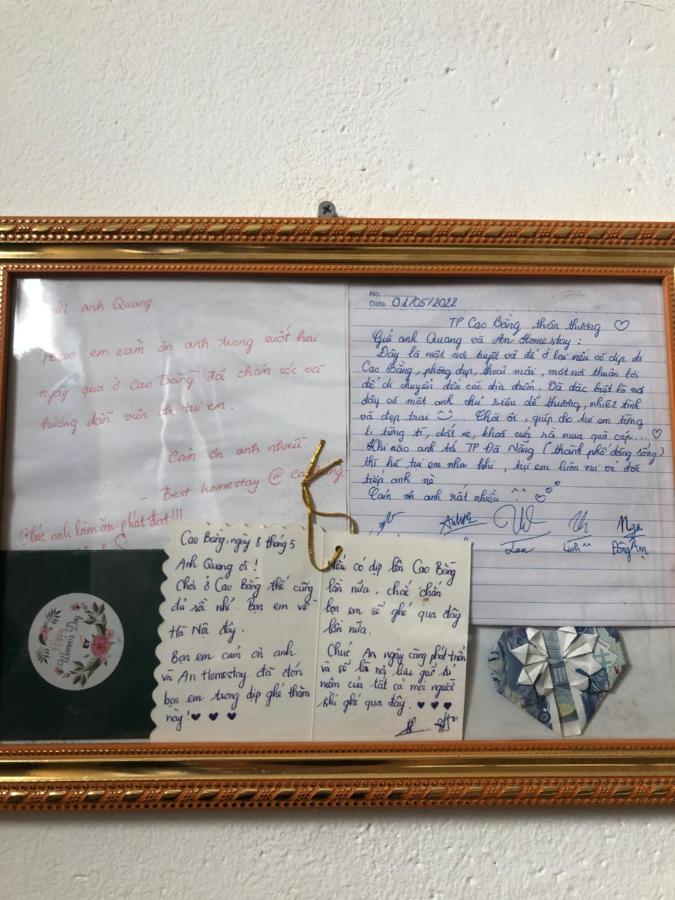 Gửi anh Quang.
Team em cảm ơn anh trong suốt hai
ngày qua ở Cao Bằng đã chăm sóc và
hướng dẫn
Cảm ơn anh nhiều
- Best homestay @ cao bằng
Chúc anh làm ăn phát đạt!!!
No.
Date. 01/05/2022
TP Cao Bằng thân thương
Gửi anh Quang và An Homestay:
Đây là một nơi tuyệt vời để ở lại nếu có dịp đi
Cao Bằng, phòng đẹp, thoải mái, một nơi thuận lợi
để di chuyển đến các địa điểm. Và đặc biệt là nơi
đây có một anh chủ siêu dễ thương, nhiệt tình
và đẹp trai. Chời ơi, giúp đỡ tụi em từng
li từng tí, dắt xe, khoá cửa rồi mua quà cáp...
Khi nào anh tới TP Đà Nẵng (thành phố đáng sống)
thì hú tụi em nha anh, tụi em luôn vui vẻ đón
tiếp anh nè
Cảm ơn anh rất nhiều ^^
Lan Linh ^^ Nga
Cao Bằng, ngày 8 tháng 5
Anh Quang ơi!
Chơi ở Cao Bằng thế cũng
đủ rồi nhỉ. Bọn em về
Hà Nội đây.
Bọn em cảm ơn anh
và An Homestay đã đón
bọn em trong dịp ghé thăm
này!
Nếu có dịp lên Cao Bằng
lần nữa, chắc chắn
bọn em sẽ ghé qua đây
lần nữa.
Chúc An ngày càng phát triển
và sẽ là nơi lưu giữ kỉ
niệm của tất cả mọi người
khi ghé qua đây.
Happy
Women's Day